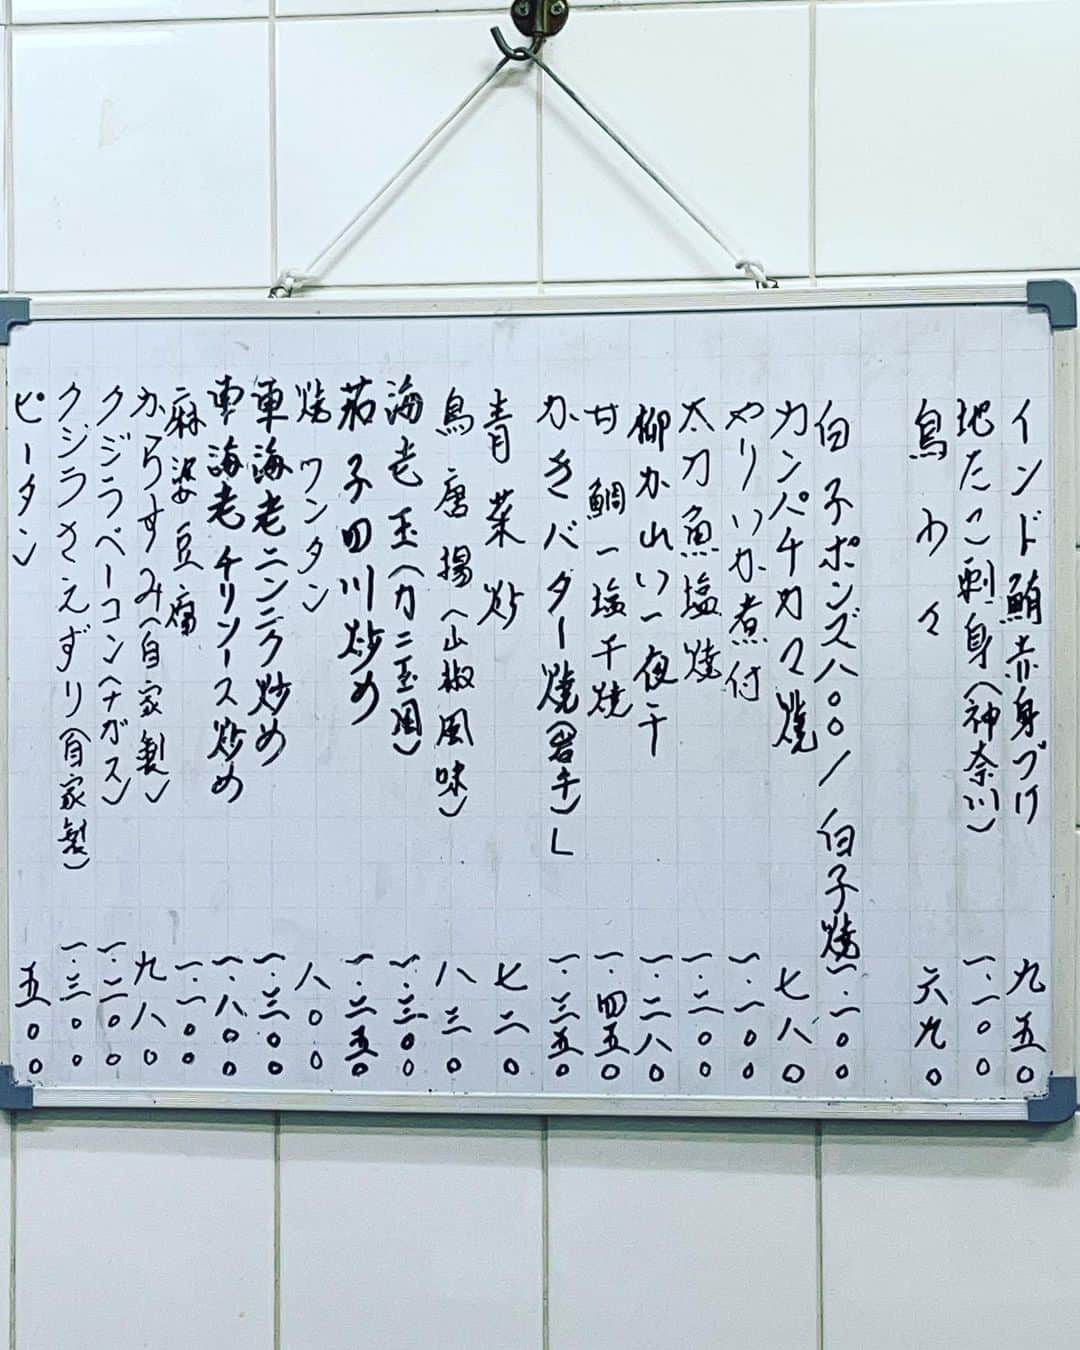 インド鮪赤身づけ 九五〇
地たこ刺身(神奈川) 一.一〇〇
鳥わさ 六九〇
白子ポンズ八〇〇/白子焼 一.一〇〇
カンパチカマ焼 七八〇
やりいか煮付 一.一〇〇
太刀魚塩焼 一.二〇〇
柳かれい一夜干 一.二八〇
甘鯛一塩干焼 一.四五〇
かきバター焼(岩手)L 一.三五〇
青菜炒 七二〇
鳥唐揚(山椒風味) 八三〇
海老玉(カニ玉風) 一.三〇〇
茄子四川炒め 一.二五〇
焼ワンタン 八〇〇
車海老ニンニク炒め 一.三〇〇
車海老チリソース炒め 一.八〇〇
麻婆豆腐 一.一〇〇
からすみ(自家製) 九八〇
クジラベーコン(ナガス) 一.二〇〇
クジラさえずり(自家製) 一.三〇〇
ピータン 五〇〇